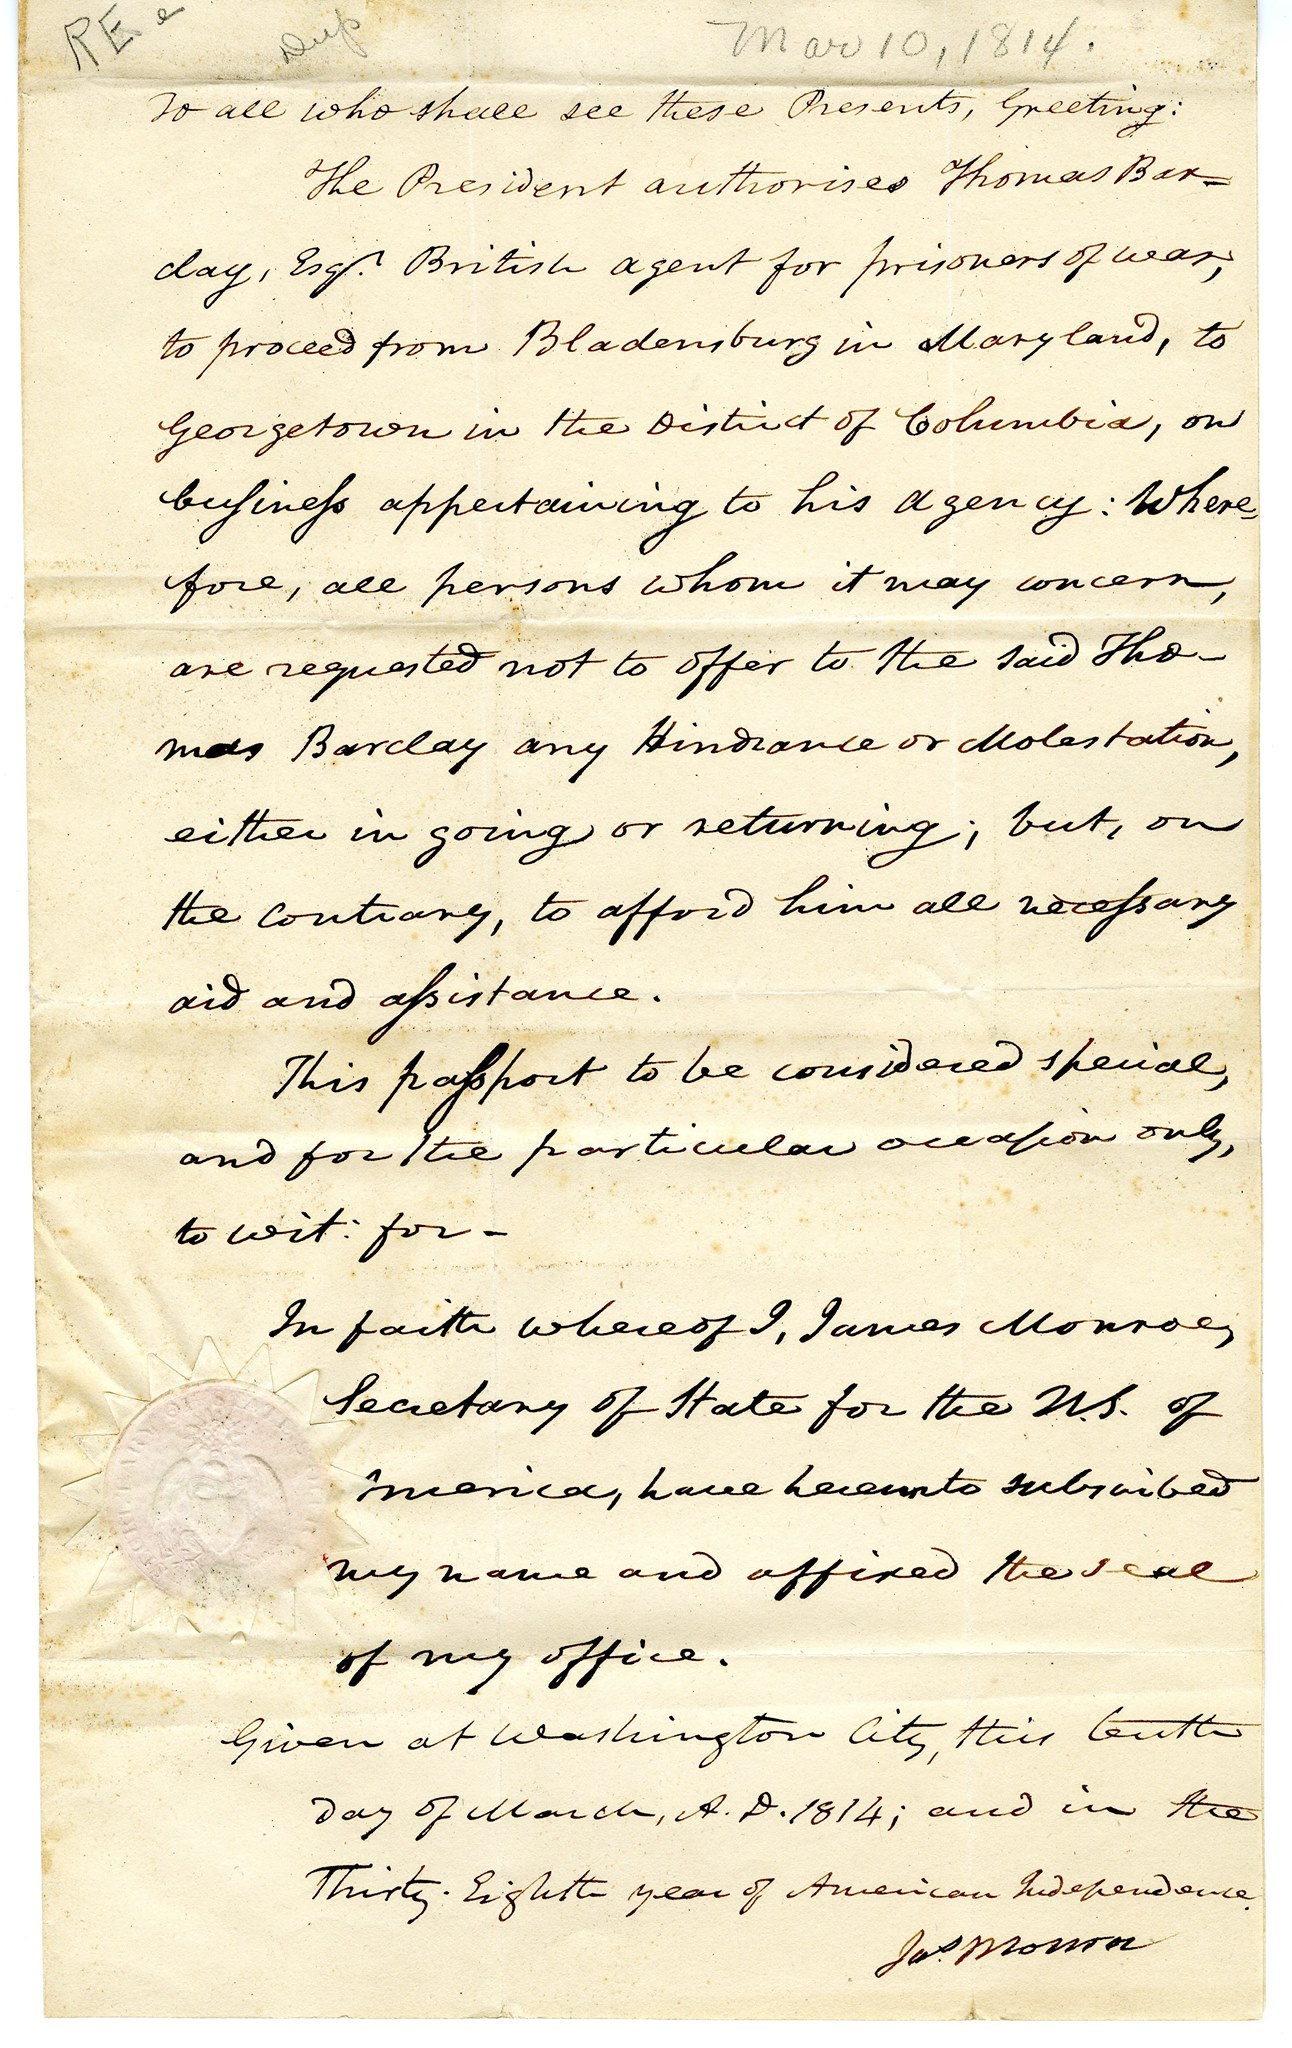 RE
Dup
Mar 10, 1814.
To all who shall see these Presents, Greeting:
The President authorises Thomas Bar-
clay, Esqr. British agent for prisoners of war,
to proceed from Bladensburg in Maryland, to
Georgetown in the District of Columbia, on
business appertaining to his agency: Where-
fore, all persons whom it may concern,
are requested not to offer to the said Tho-
mas Barclay any Hindrance or Molestation,
either in going or returning; but, on
the contrary, to afford him all necessary
aid and assistance.
This passport to be considered special,
and for the particular occasion only,
to wit: for-
In faith whereof I, James Monroe,
Secretary of State for the U.S. of
America, have hereunto subscribed
my name and affixed the seal
of my office.
Given at Washington City, this tenth
day of March, A.D. 1814; and in the
Thirty-Eighth year of American Independence.
Jas. Monroe